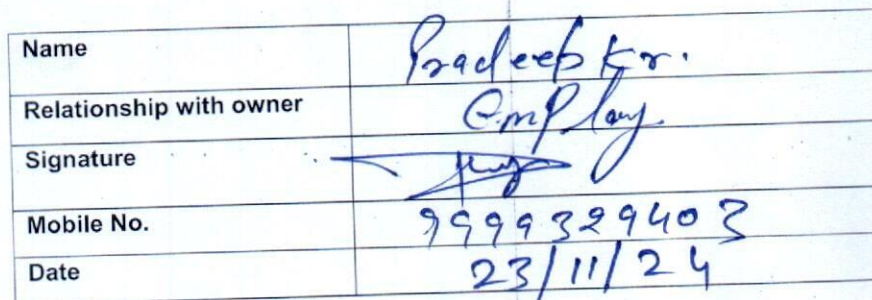 Name Pradeep Kr.
Relationship with owner Employ
Signature
Mobile No. 9999329403
Date 23/11/24